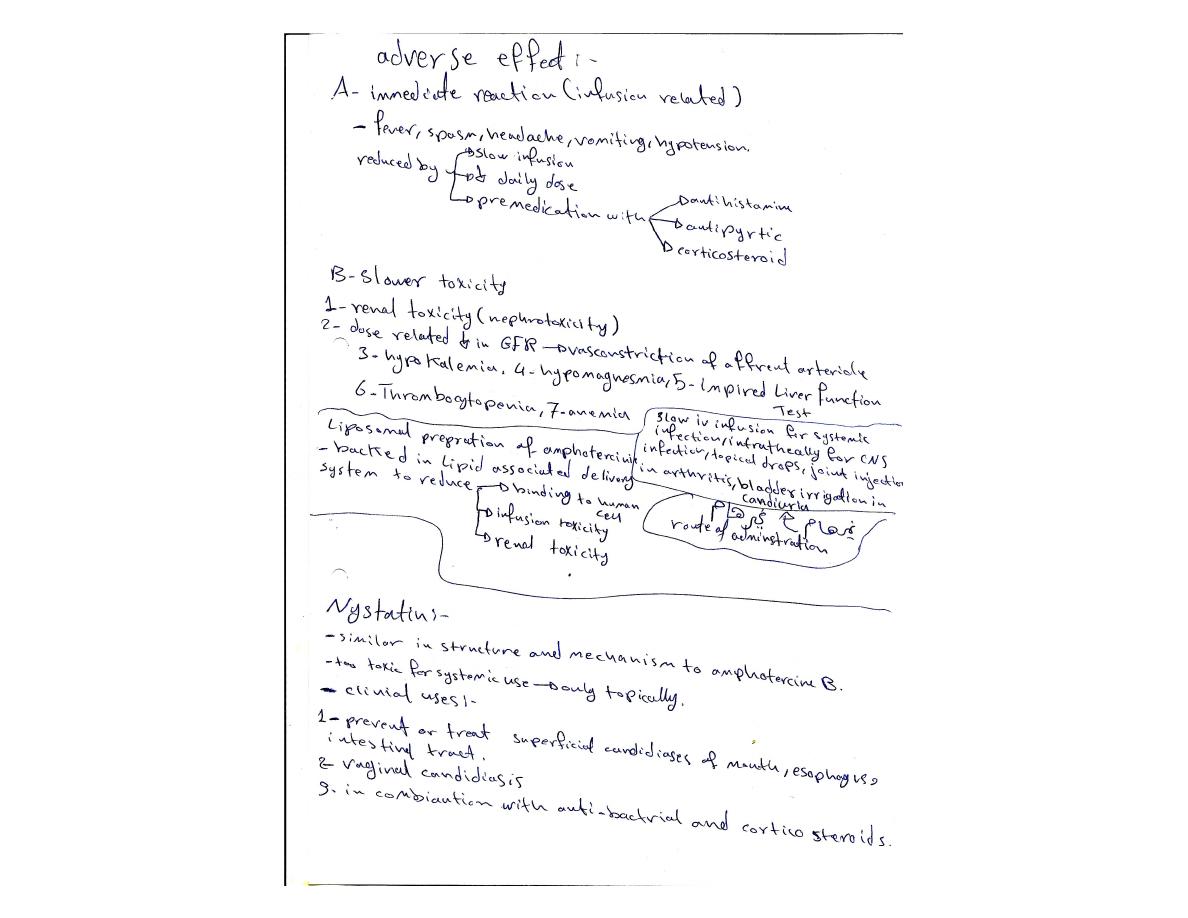 adverse effect :-
A- immediate reaction (infusion related)
- fever, spasm, headache, vomiting, hypotension.
reduced by
slow infusion
↓ daily dose
premedication with
antihistamine
antipyrtic
corticosteroid
B- Slower toxicity
1- renal toxicity (nephrotoxicity)
2- dose related ↓ in GFR → vasconstriction of affrent arteriole
3- hypokalemia, 4- hypomagnesmia, 5- Impired Liver function
Test
6- Thrombocytopenia, 7- anemia
Liposomal prepration of amphotercin
- backed in Lipid associated delivery
system to reduce
binding to human
cell
infusion toxicity
renal toxicity
Slow iv infusion for systemic
infection, intratheally for CNS
infection, topical drops, joint injection
in arthritis, bladder irrigation in
candiuria
route of adminstration
Nystatin :-
- similar in structure and mechanism to amphotercine B.
- too toxic for systemic use → only topically.
- clinial uses :-
1- prevent or treat superficial candidiases of mouth, esophagus,
intestinal tract.
2- vaginal candidiasis
3- in combiantion with anti-bactrial and cortico steroids.